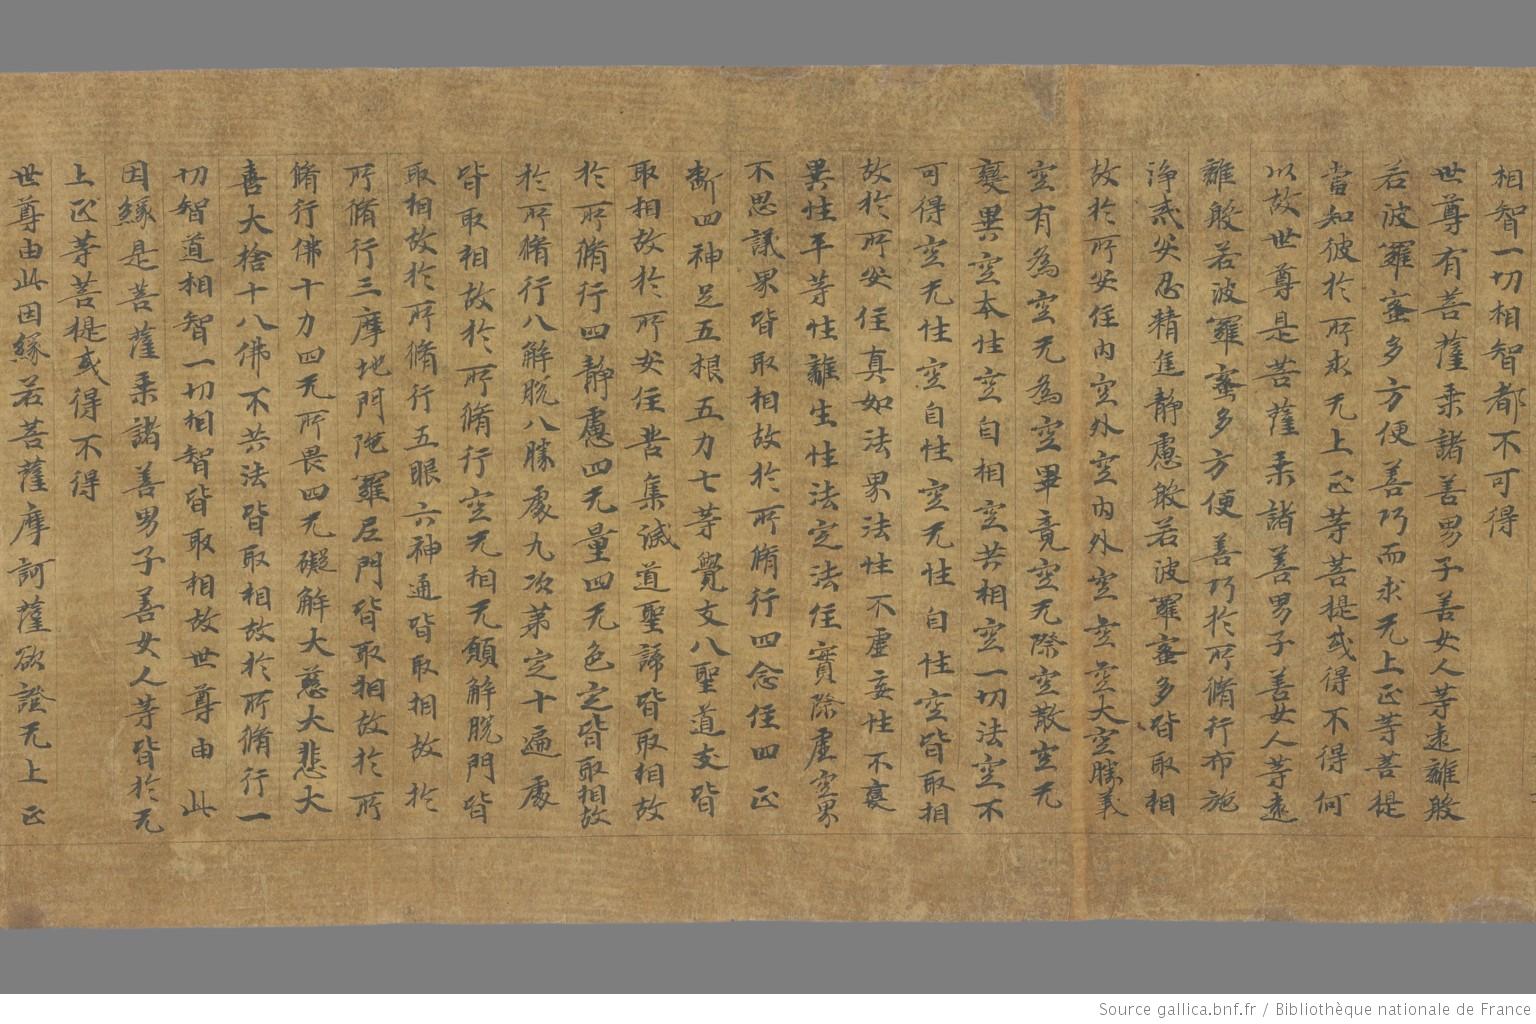 相智一切相智都不可得
世尊有菩薩乘諸善男子善女人等遠離般
若波羅蜜多方便善巧而求无上正等菩提
當知彼於所求无上正等菩提或得不得何
以故世尊是菩薩乘諸善男子善女人等遠
離般若波羅蜜多方便善巧於所脩行布施
淨戒安忍精進靜慮般若波羅蜜多皆取相
故於所安住內空外空內外空空空大空勝義
空有為空无為空畢竟空无際空散空无
變異空本性空自相空共相空一切法空不
可得空无性空自性空无性自性空皆取相
故於所安住真如法界法性不虛妄性不變
異性平等性離生性法定法住實際虛空界
不思議界皆取相故於所脩行四念住四正
斷四神足五根五力七等覺支八聖道支皆
取相故於所安住苦集滅道聖諦皆取相故
於所脩行四靜慮四无量四无色定皆取相故
於所脩行八解脫八勝處九次第定十遍處
皆取相故於所脩行空无相无願解脫門皆
取相故於所脩行五眼六神通皆取相故於
所脩行三摩地門陁羅尼門皆取相故於所
脩行佛十力四无所畏四无礙解大慈大悲大
喜大捨十八佛不共法皆取相故於所脩行一
切智道相智一切相智皆取相故世尊由此
因緣是菩薩乘諸善男子善女人等皆於无
上正等菩提或得不得
世尊由此因緣若菩薩摩訶薩欲證无上正
Source gallica.bnf.fr / Bibliothèque nationale de France